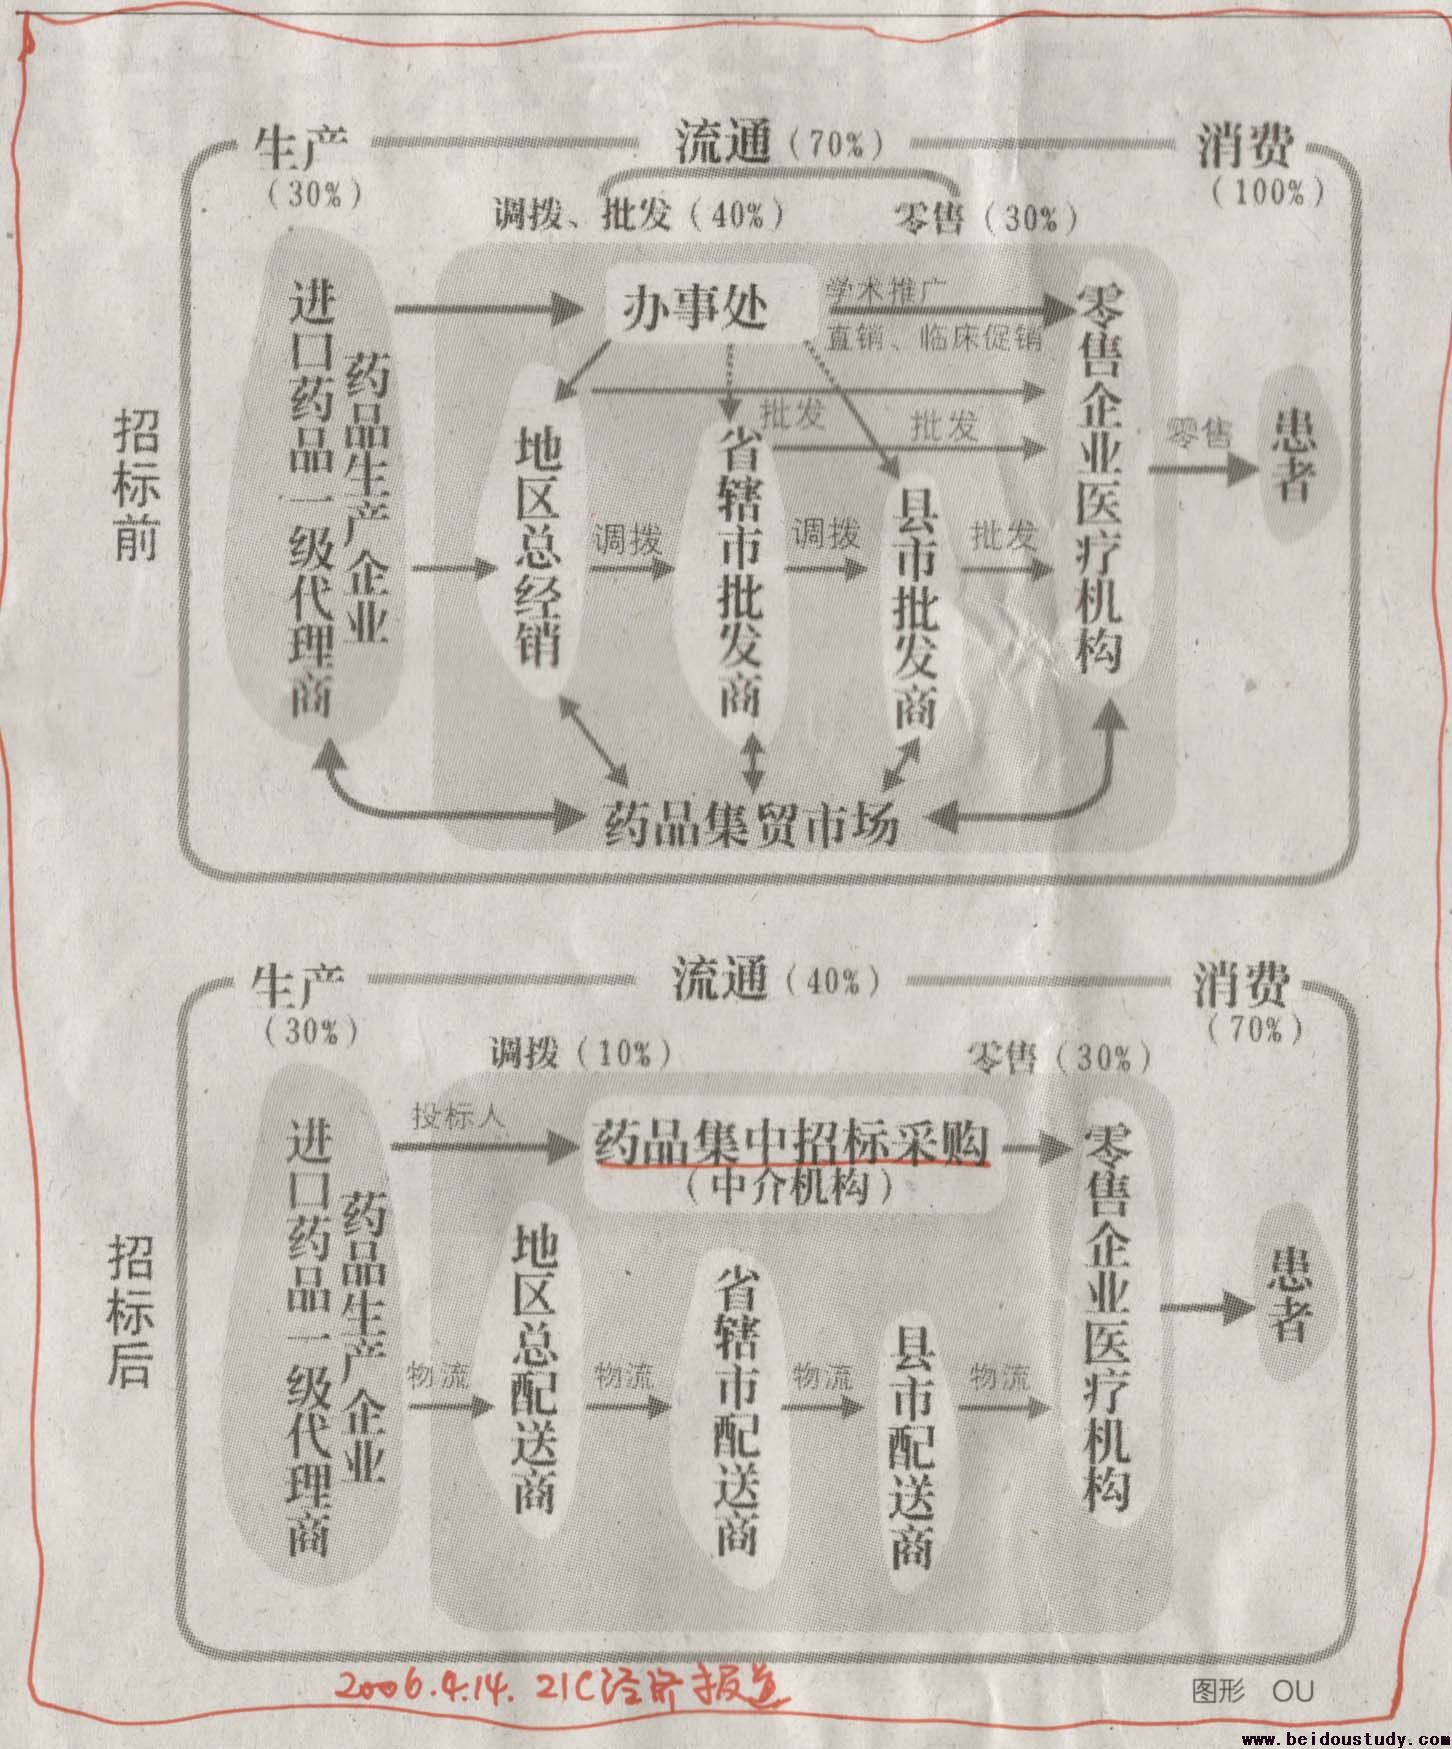 生产 流通(70%) 消费
(30%) (100%)
调拨、批发(40%) 零售(30%)
招标前
进口药品一级代理商
药品生产企业
办事处
学术推广
直销、临床促销
批发
批发
地区总经销
调拨
省辖市批发商
调拨
县市批发商
批发
零售企业医疗机构
零售
患者
药品集贸市场
生产 流通(40%) 消费
(30%) (70%)
调拨(10%) 零售(30%)
招标后
进口药品一级代理商
药品生产企业
投标人
药品集中招标采购
(中介机构)
物流
地区总配送商
物流
省辖市配送商
物流
县市配送商
物流
零售企业医疗机构
患者
2006.4.14. 21C经济报道
图形 OU
www.beidoustudy.com